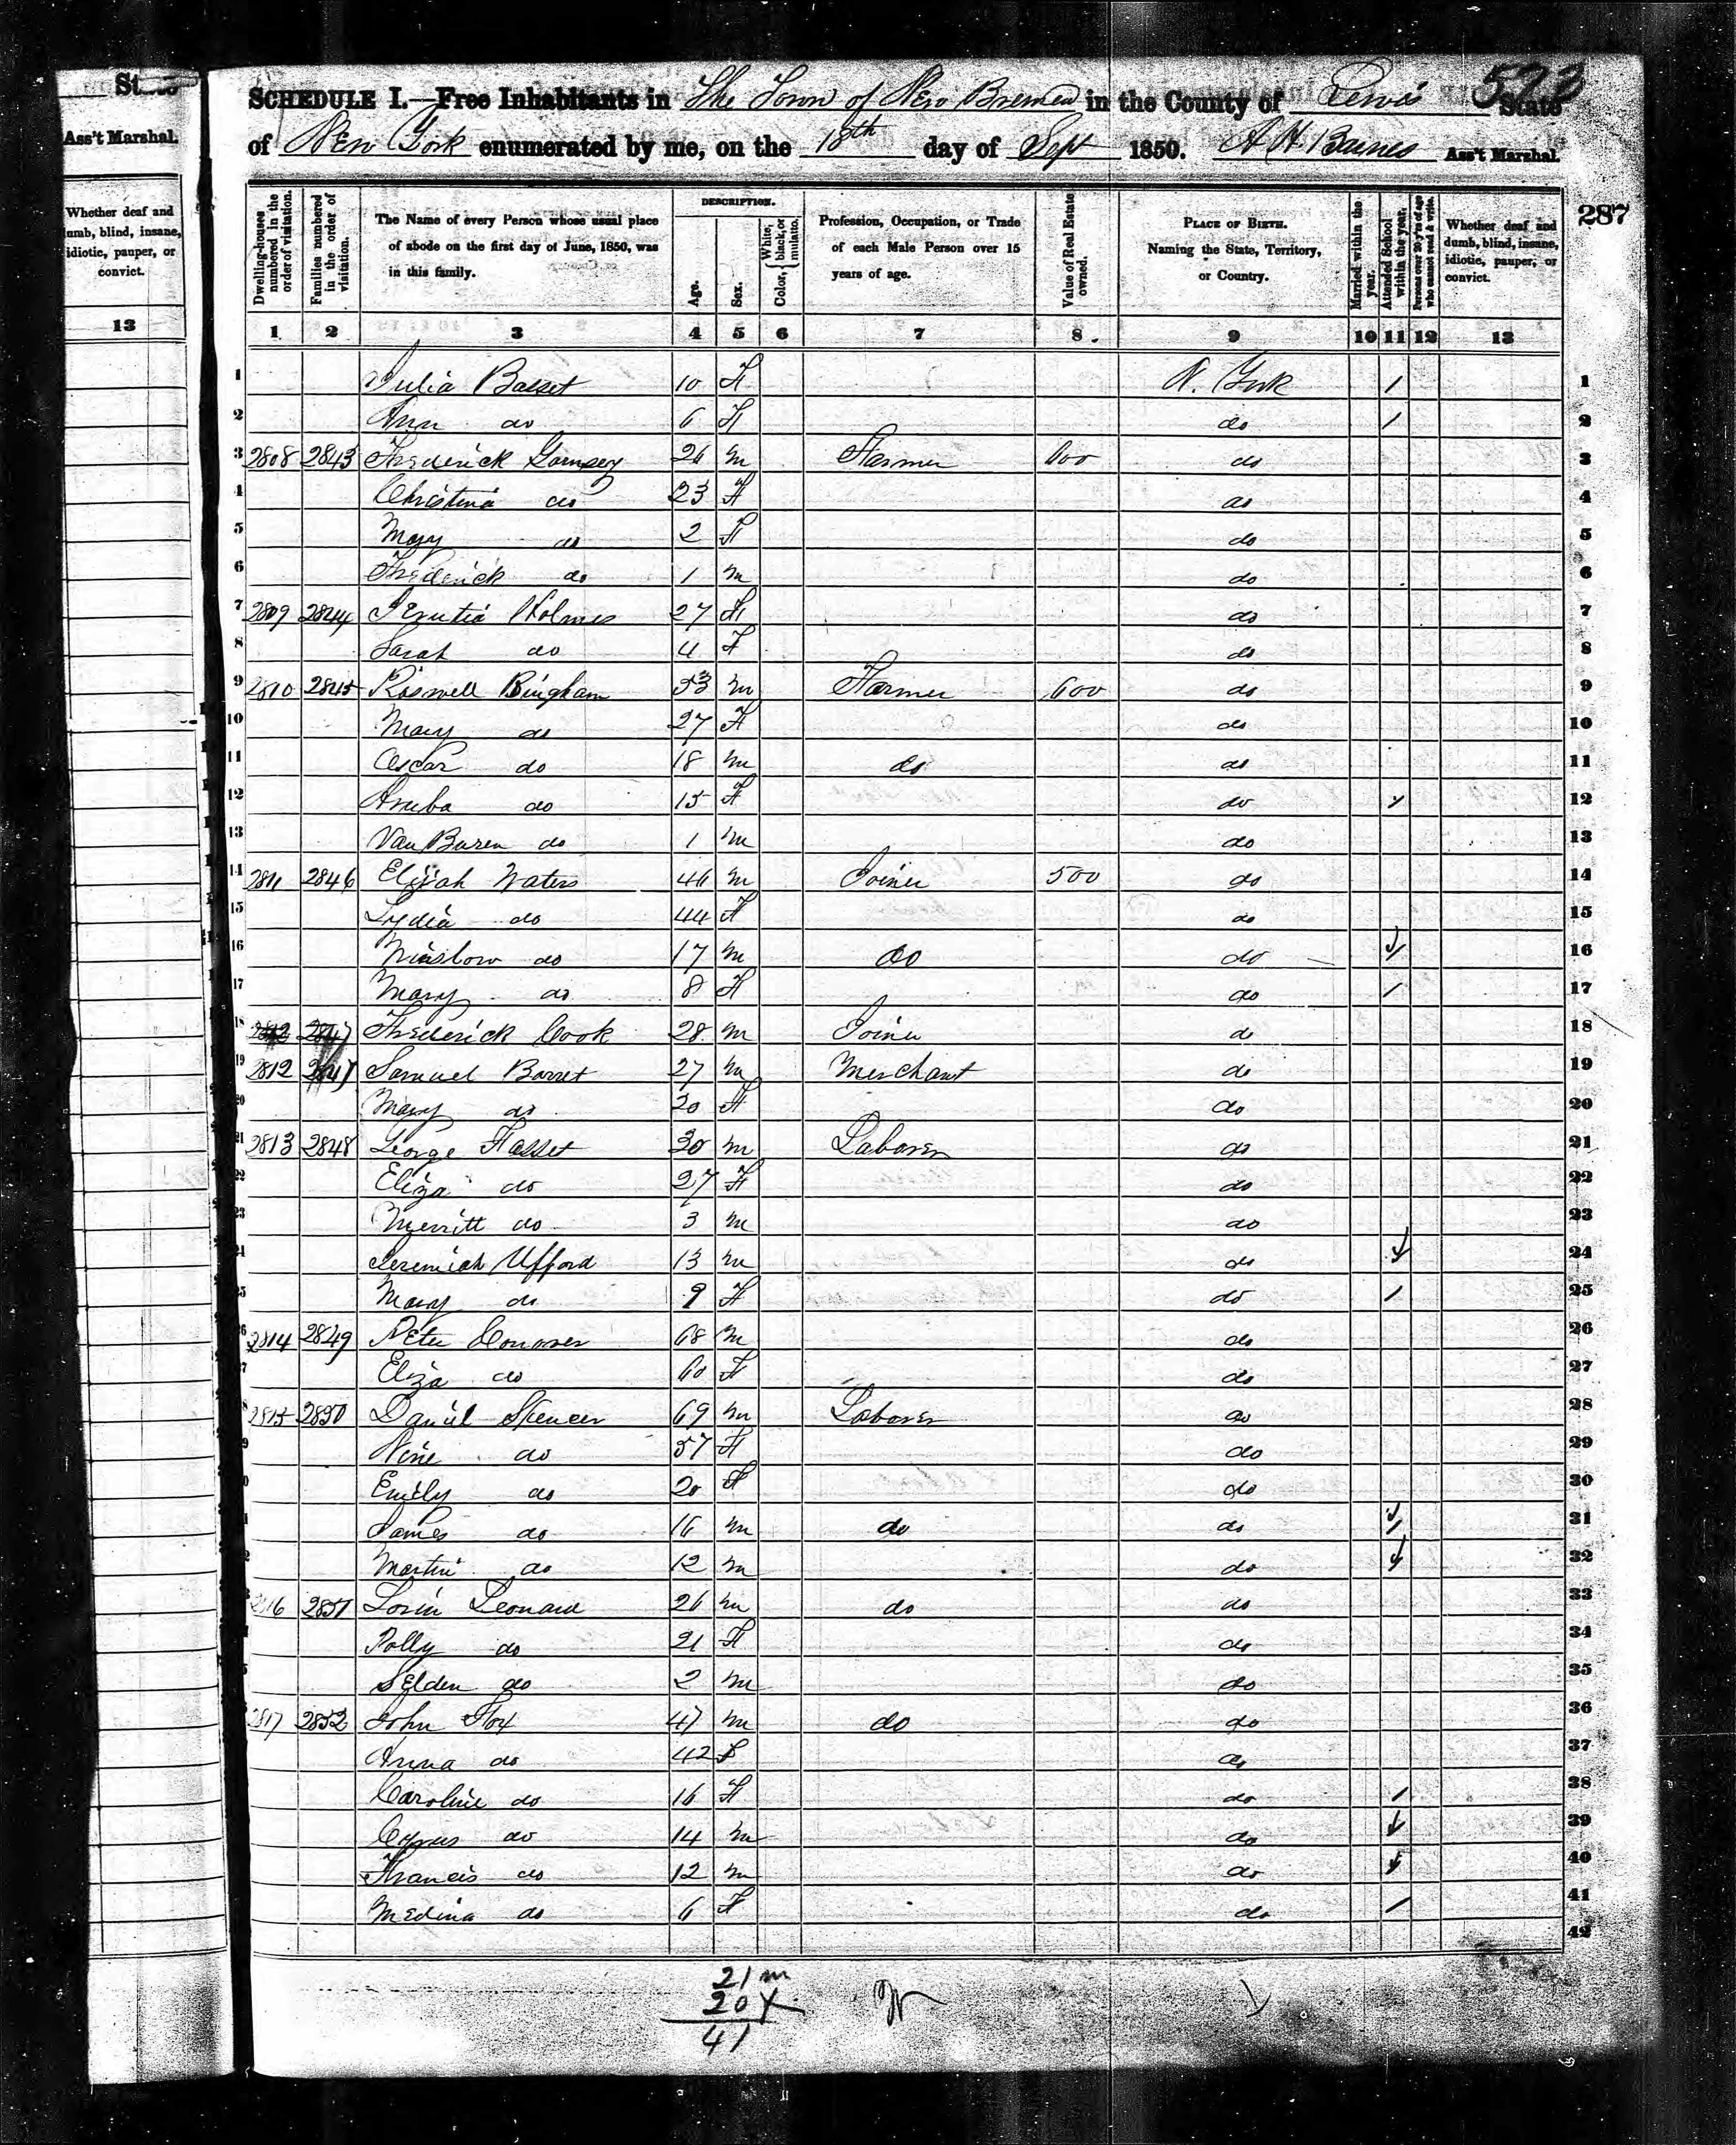 St
Ass't Marshal.
Whether deaf and
dumb, blind, insane,
idiotic, pauper, or
convict.
13
573
SCHEDULE I.—Free Inhabitants in The Town of New Bremen in the County of Lewis State
of New York enumerated by me, on the 18th day of Sept 1850. A H Barnes Ass't Marshal.
287
Dwelling-houses numbered in the order of visitation.
Families numbered in the order of visitation.
The Name of every Person whose usual place of abode on the first day of June, 1850, was in this family.
DESCRIPTION.
Age.
Sex.
Color, White, black, or mulatto.
Profession, Occupation, or Trade of each Male Person over 15 years of age.
Value of Real Estate owned.
PLACE OF BIRTH. Naming the State, Territory, or Country.
Married within the year.
Attended School within the year.
Persons over 20 y'rs of age who cannot read & write.
Whether deaf and dumb, blind, insane, idiotic, pauper, or convict.
1 2 3 4 5 6 7 8 9 10 11 12 13
1 Julia Basset 10 F N. York / 1
2 Ann do 6 F do / 2
3 2808 2843 Frederick 26 m Farmer 600 do 3
4 Christina do 23 F do 4
5 Mary do 2 F do 5
6 Frederick do 1 m do 6
7 2809 2844 Holmes 27 F do 7
8 Sarah do 4 F do 8
9 2810 2845 Roswell Bingham 53 m Farmer 600 do 9
10 Mary do 27 F do 10
11 Oscar do 18 m do do 11
12 do 15 F do / 12
13 Van Buren do 1 m do 13
14 2811 2846 Elijah Waters 46 m Joiner 500 do 14
15 Lydia do 44 F do 15
16 Winslow do 17 m do do / 16
17 Mary do 8 F do / 17
18 2812 2847 Frederick Cook 28 m Joiner do 18
19 2812 2847 Samuel Barret 27 m Merchant do 19
20 Mary do 20 F do 20
21 2813 2848 George Fasset 30 m Laborer do 21
22 Eliza do 27 F do 22
23 Merritt do 3 m do 23
24 Jeremiah Ufford 13 m do / 24
25 Mary do 9 F do / 25
26 2814 2849 Peter Conover 68 m do 26
27 Eliza do 60 F do 27
28 2815 2850 Daniel Spencer 69 m Laborer do 28
29 do 57 F do 29
30 Emily do 20 F do 30
31 James do 16 m do do / 31
32 Martin do 12 m do / 32
33 2816 2851 Lorin Leonard 26 m do do 33
34 Polly do 21 F do 34
35 Selden do 2 m do 35
36 2817 2852 John Fox 47 m do do 36
37 Anna do 42 F do 37
38 Caroline do 16 F do / 38
39 Cyrus do 14 m do / 39
40 Francis do 12 m do / 40
41 Medina do 6 F do / 41
42
21 m
20 f
41